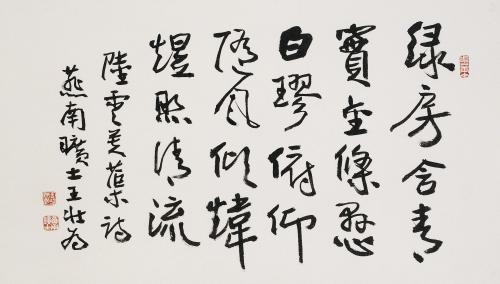 緑房含青
實金條懸
白璆俯仰
隨風傾煒
煜照清流
陸雲芙蕖詩
燕南曠士王壯為